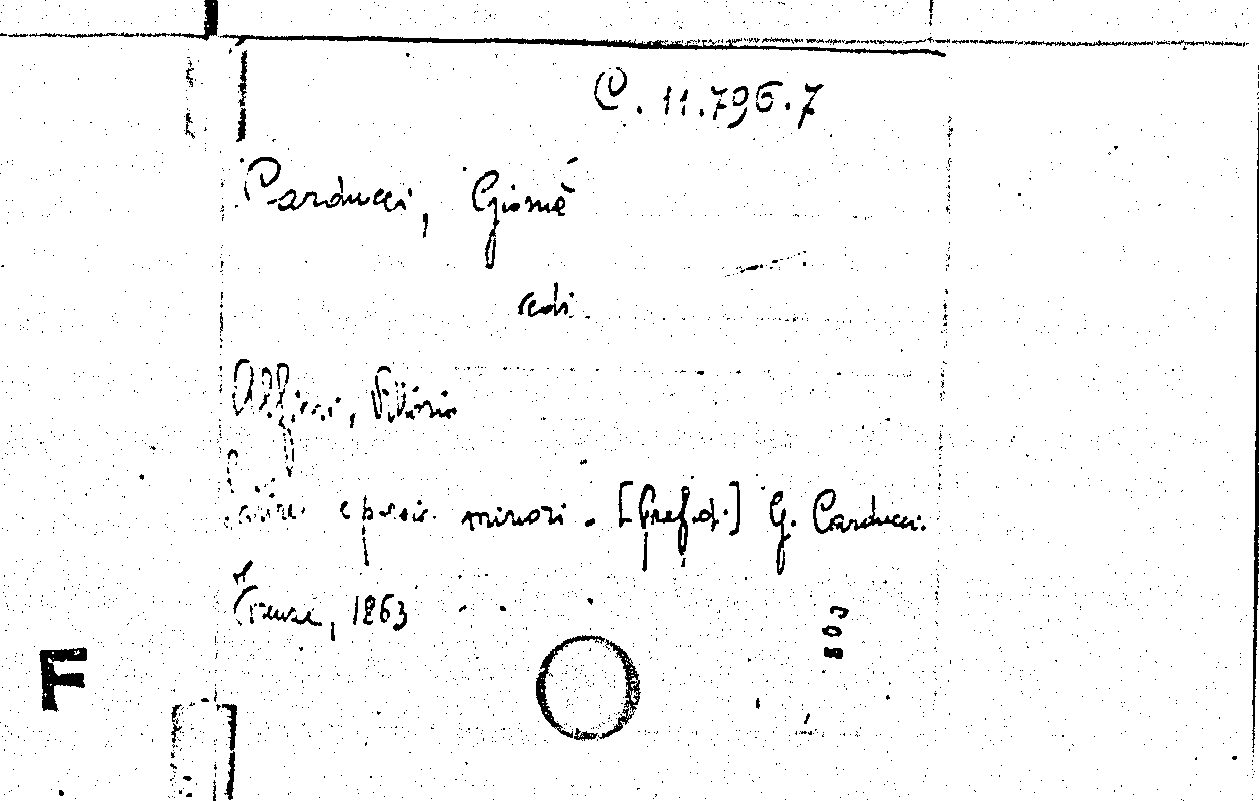 C. 11.796.7
Carducci, Giosuè
vedi
Alfieri, Vittorio
Satire e poesie minori. [Pref. d.] G. Carducci.
Firenze, 1863
503
F